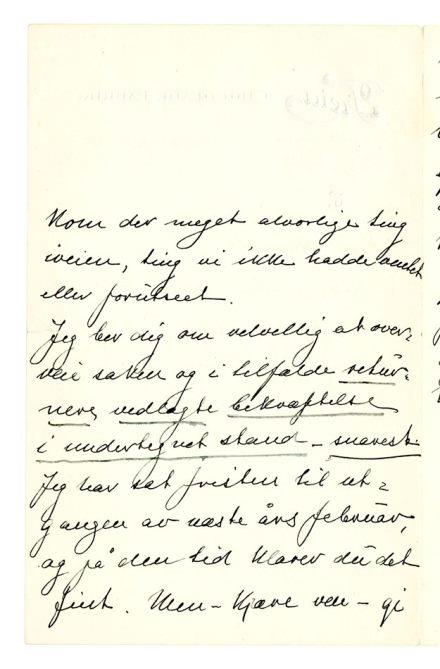 kom der meget alvorlige ting
iveien, ting vi ikke hadde ventet
eller forutseet.
Jeg ber dig om velvillig at over-
veie saken og i tilfælde retur-
nere vedlagte bekræftelse
i undertegnet stand - snarest.
Jeg har sat fristen til ut-
gangen av næste års februar,
og på den tid klarer du det
fint. Men - kjære ven - gi